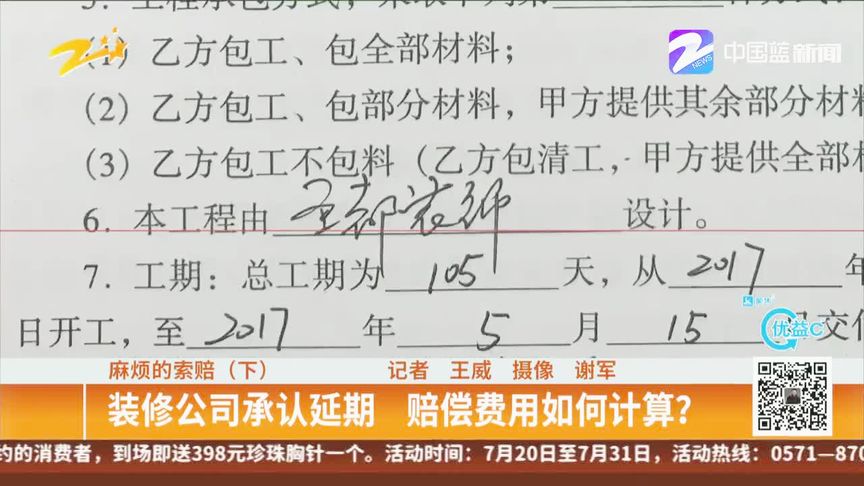 5. 工程承包方式，采取下列第
中国蓝新闻
NEWS
(1) 乙方包工、包全部材料；
(2) 乙方包工、包部分材料，甲方提供其余部分材料
(3) 乙方包工不包料（乙方包清工，甲方提供全部材
6. 本工程由 圣都装饰 设计。
7. 工期：总工期为 105 天，从 2017 年
日开工，至 2017 年 5 月 15 日交付
优益C
麻烦的索赔（下） 记者 王威 摄像 谢军
装修公司承认延期 赔偿费用如何计算？
约的消费者，到场即送398元珍珠胸针一个。活动时间：7月20日至7月31日，活动热线：0571—870